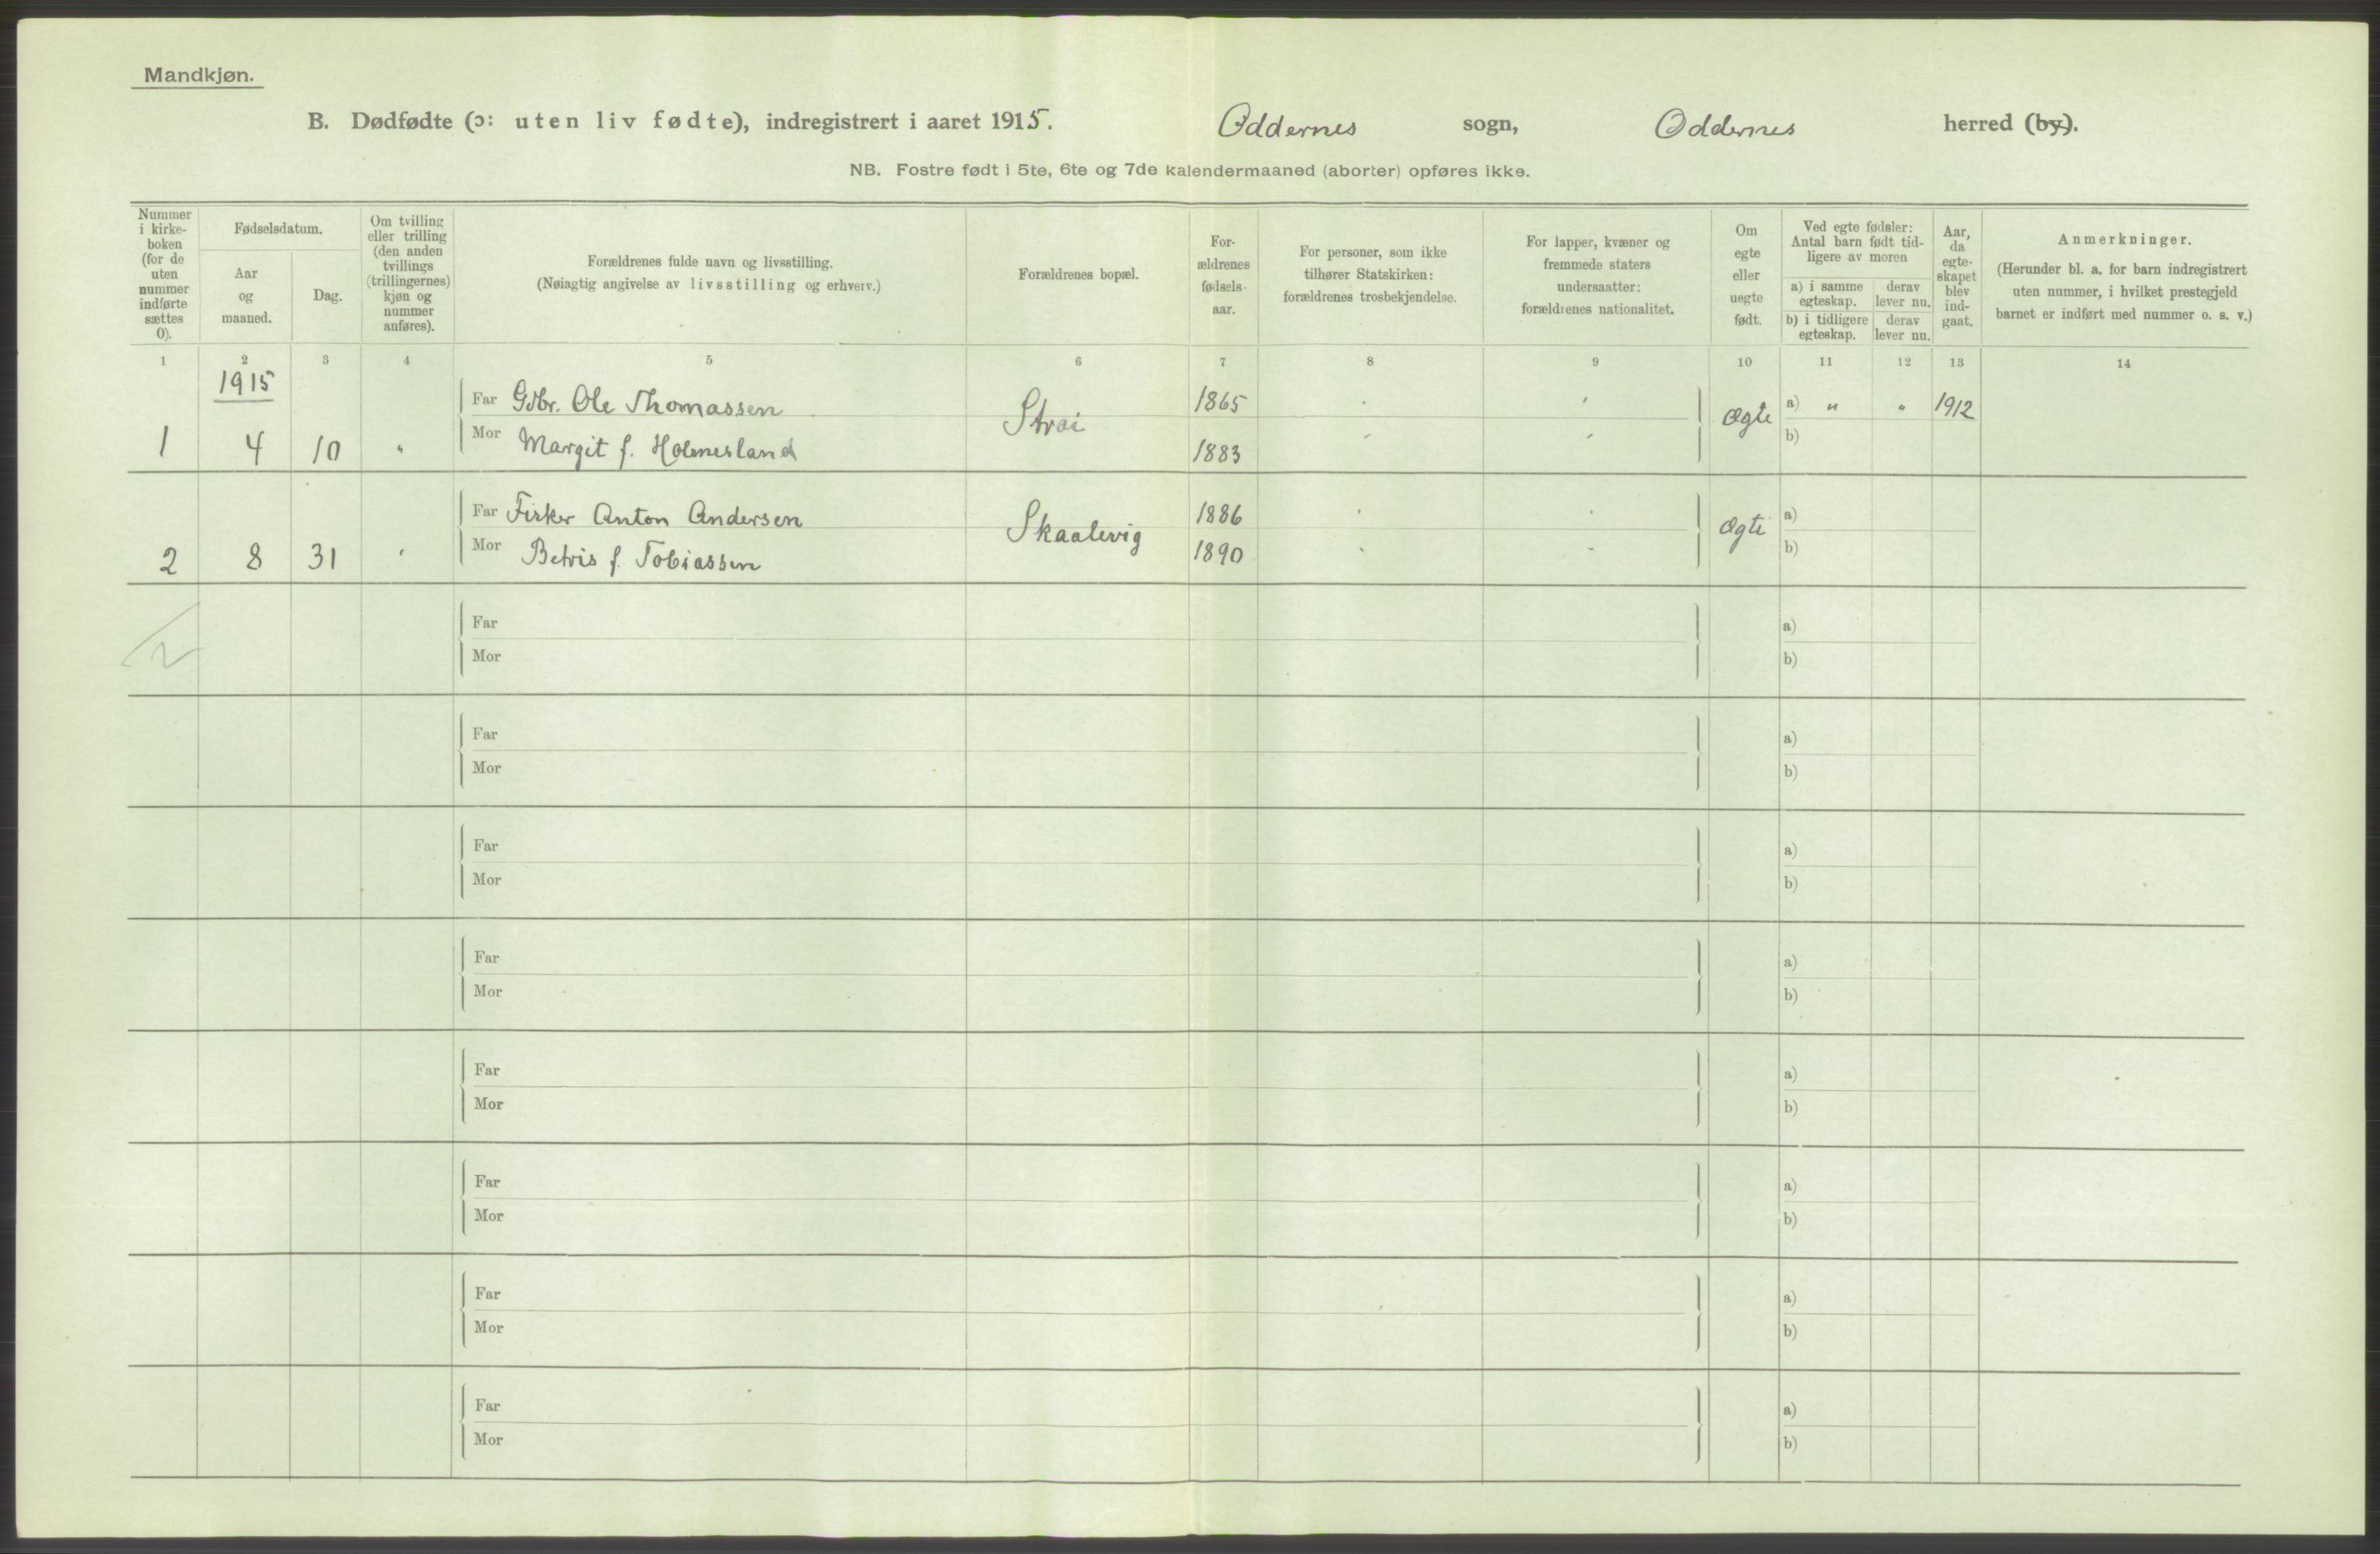 Mandkjøn.
B. Dødfødte (ɔ: uten liv fødte), indregistrert i aaret 1915. Oddernes sogn, Oddernes herred (by).
NB. Fostre født i 5te, 6te og 7de kalendermaaned (aborter) opføres ikke.
Nummer
i kirke-
boken
(for de
uten
nummer
indførte
sættes
0).
Fødselsdatum.
Aar
og
maaned.
Dag.
Om tvilling
eller trilling
(den anden
tvillings
(trillingernes)
kjøn og
nummer
anføres).
Forældrenes fulde navn og livsstilling.
(Nøiagtig angivelse av livsstilling og erhverv.)
Forældrenes bopæl.
For-
ældrenes
fødsels-
aar.
For personer, som ikke
tilhører Statskirken:
forældrenes trosbekjendelse.
For lapper, kvæner og
fremmede staters
undersaatter:
forældrenes nationalitet.
Om
egte
eller
uegte
født.
Ved egte fødsler:
Antal barn født tid-
ligere av moren
a) i samme
egteskap.
derav
lever nu.
b) i tidligere
egteskap.
derav
lever nu.
Aar,
da
egte-
skapet
blev
ind-
gaat.
Anmerkninger.
(Herunder bl. a. for barn indregistrert
uten nummer, i hvilket prestegjeld
barnet er indført med nummer o. s. v.)
1 2 3 4 5 6 7 8 9 10 11 12 13 14
1915
Far Gdbr. Ole Thomassen Strai 1865 Ægte a) " " 1912
1 4 10 " Mor Margit f. Holmesland 1883 b)
Far Fisker Anton Andersen Skaalevig 1886 Ægte a)
2 8 31 Mor Betris f. Tobiassen 1890 b)
2
Far a)
Mor b)
Far a)
Mor b)
Far a)
Mor b)
Far a)
Mor b)
Far a)
Mor b)
Far a)
Mor b)
Far a)
Mor b)
Far a)
Mor b)